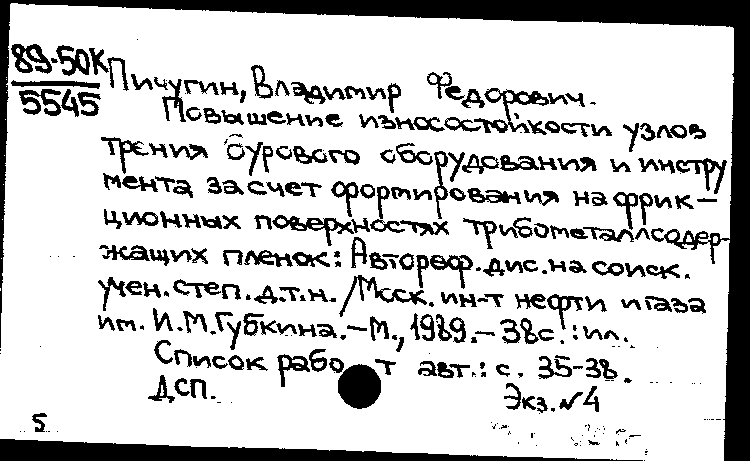 89-50К
5545
Пичугин, Владимир Федорович.
Повышение износостойкости узлов
трения бурового оборудования и инстру
мента за счет формирования на фрик-
ционных поверхностях трибометаллсодер-
жащих пленок: Автореф. дис. на соиск.
учен. степ. д.т.н. /Моск. ин-т нефти и газа
им. И.М.Губкина. – М., 1989. – 38с. : ил.
Список работ авт.: с. 35-38.
ДСП.
Экз. №4
5